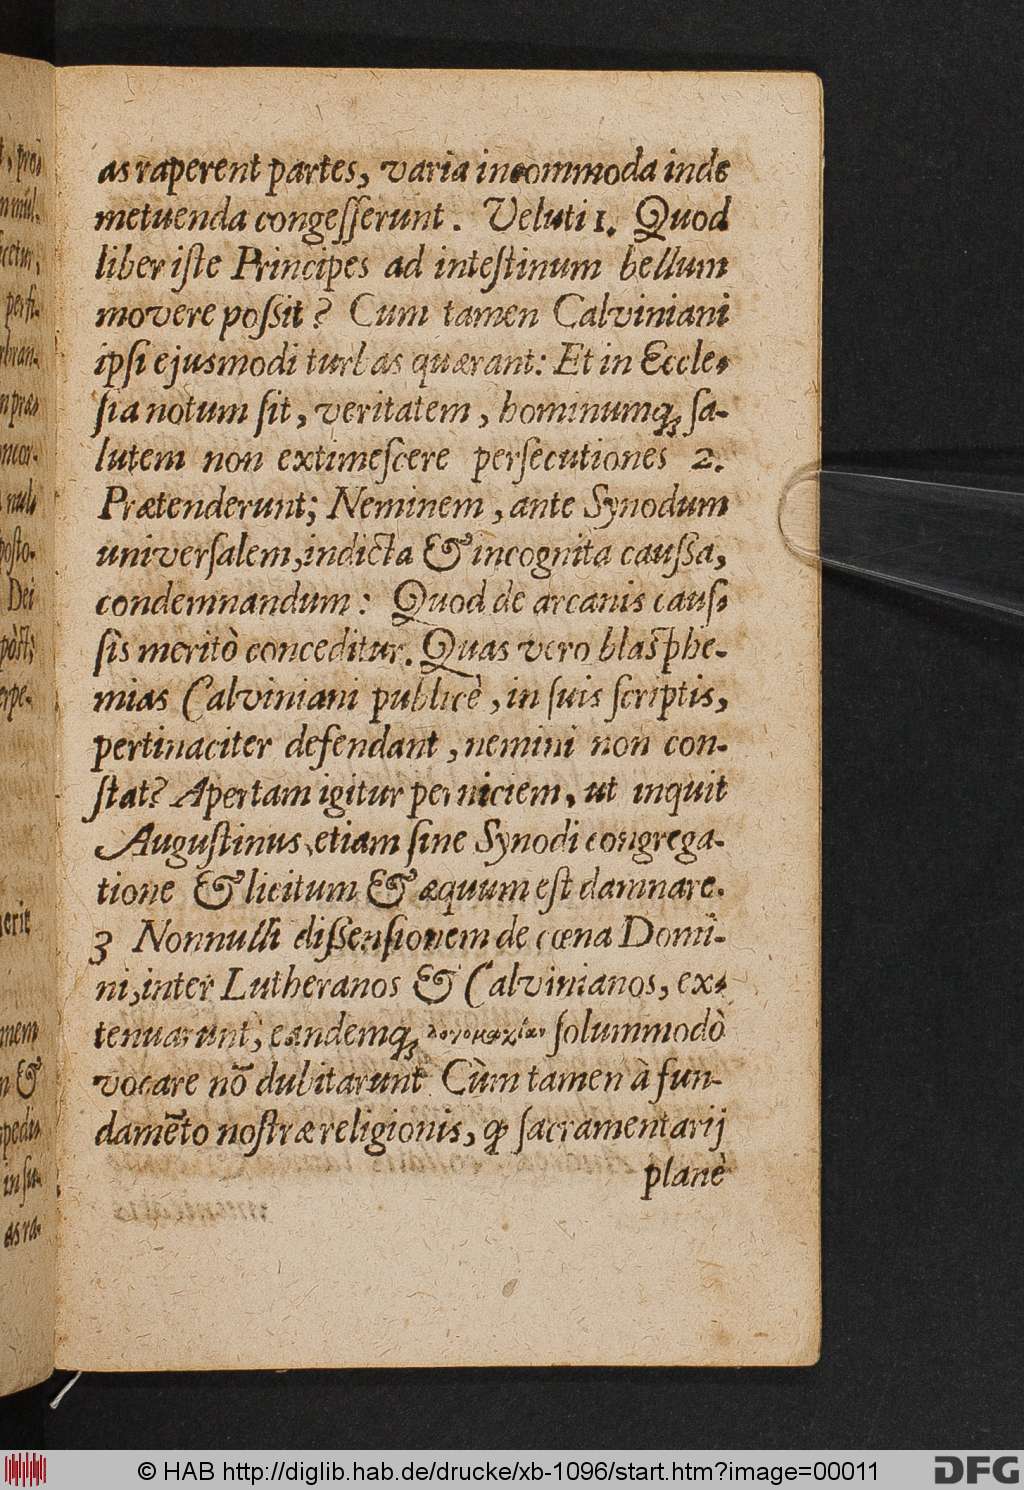 as raperent partes, varia incommoda inde
metuenda congesſerunt. Veluti 1. Quod
liber iſte Principes ad inteſtinum bellum
movere poſsit? Cum tamen Calviniani
ipſi ejusmodi turbas quærant: Et in Eccle-
ſia notum ſit, veritatem, hominumq; ſa-
lutem non extimeſcere perſecutiones 2.
Prætenderunt; Neminem, ante Synodum
univerſalem, indicta & incognita cauſsa,
condemnandum: Quod de arcanis cauſ-
ſis meritò conceditur. Quas vero blaſphe-
mias Calviniani publicè, in ſuis ſcriptis,
pertinaciter defendant, nemini non con-
ſtat? Apertam igitur perniciem, ut inquit
Auguſtinus, etiam ſine Synodi congrega-
tione & licitum & æquum eſt damnare.
3 Nonnulli diſsenſionem de cœna Domi-
ni, inter Lutheranos & Calvinianos, ex-
tenuarunt; eandemq; λογομαχίαν ſolummodò
vocare nō dubitarunt Cùm tamen à fun-
damēto noſtræ religionis, ꝙ ſacramentarij
planè
t, proì
per fi-
nuli
poſto-
Dei
gerit
n &
in ſu-
as ra-
© HAB http://diglib.hab.de/drucke/xb-1096/start.htm?image=00011
DFG